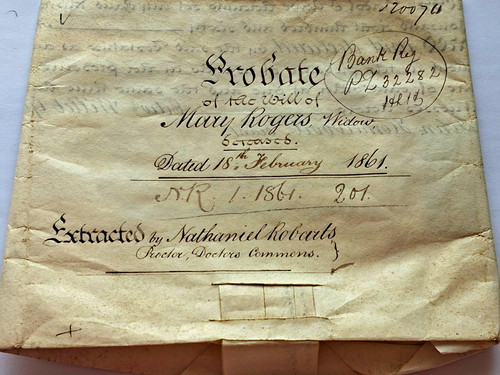 Probate
of the Will of
Mary Rogers Widow
deceased.
Dated 18th. February 1861.
N.R. 1. 1861. 201.
Extracted by Nathaniel Robarts
Proctor, Doctors Commons.
Bank Reg
PL 32282